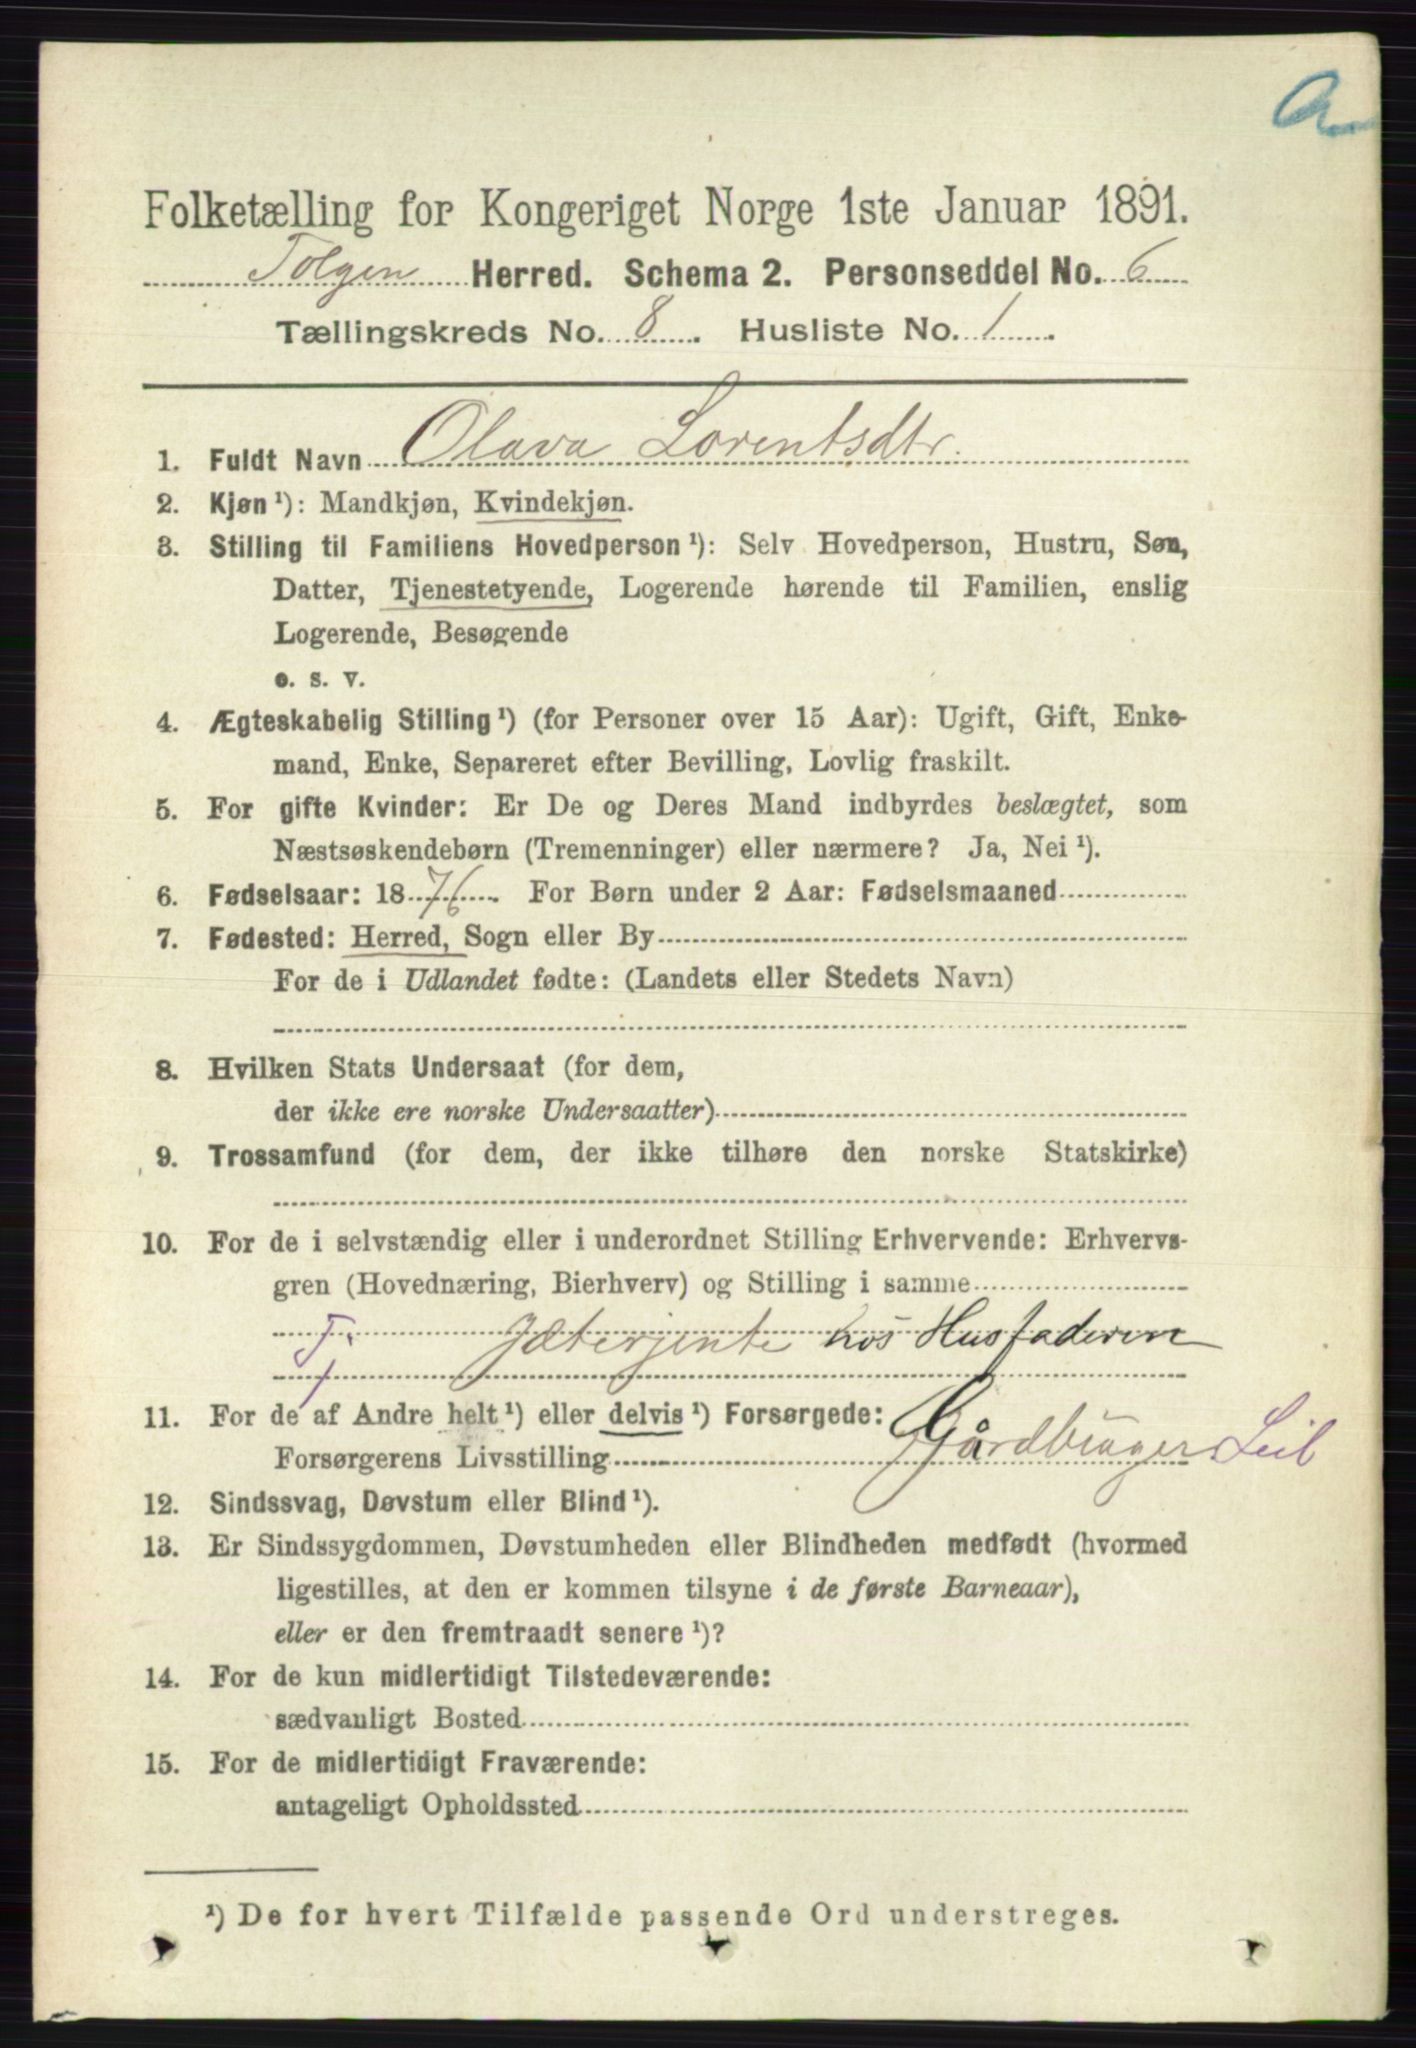 Folketælling for Kongeriget Norge 1ste Januar 1891.
Tolgen Herred. Schema 2. Personseddel No. 6
Tællingskreds No. 8. Husliste No. 1.
1. Fuldt Navn Olava Lorentsdtr.
2. Kjøn ¹): Mandkjøn, Kvindekjøn.
3. Stilling til Familiens Hovedperson ¹): Selv Hovedperson, Hustru, Søn,
Datter, Tjenestetyende, Logerende hørende til Familien, enslig
Logerende, Besøgende
o. s. v.
4. Ægteskabelig Stilling ¹) (for Personer over 15 Aar): Ugift, Gift, Enke-
mand, Enke, Separeret efter Bevilling, Lovlig fraskilt.
5. For gifte Kvinder: Er De og Deres Mand indbyrdes beslægtet, som
Næstsøskendebørn (Tremenninger) eller nærmere? Ja, Nei ¹).
6. Fødselsaar: 1876. For Børn under 2 Aar: Fødselsmaaned
7. Fødested: Herred, Sogn eller By
For de i Udlandet fødte: (Landets eller Stedets Navn)
8. Hvilken Stats Undersaat (for dem,
der ikke ere norske Undersaatter)
9. Trossamfund (for dem, der ikke tilhøre den norske Statskirke)
10. For de i selvstændig eller i underordnet Stilling Erhvervende: Erhvervs-
gren (Hovednæring, Bierhverv) og Stilling i samme
Tj Jæterjente hos Husfaderen
11. For de af Andre helt ¹) eller delvis ¹) Forsørgede:
Forsørgerens Livsstilling Gårdbruger Leil
12. Sindssvag, Døvstum eller Blind ¹).
13. Er Sindssygdommen, Døvstumheden eller Blindheden medfødt (hvormed
ligestilles, at den er kommen tilsyne i de første Barneaar),
eller er den fremtraadt senere ¹)?
14. For de kun midlertidigt Tilstedeværende:
sædvanligt Bosted
15. For de midlertidigt Fraværende:
antageligt Opholdssted
¹) De for hvert Tilfælde passende Ord understreges.